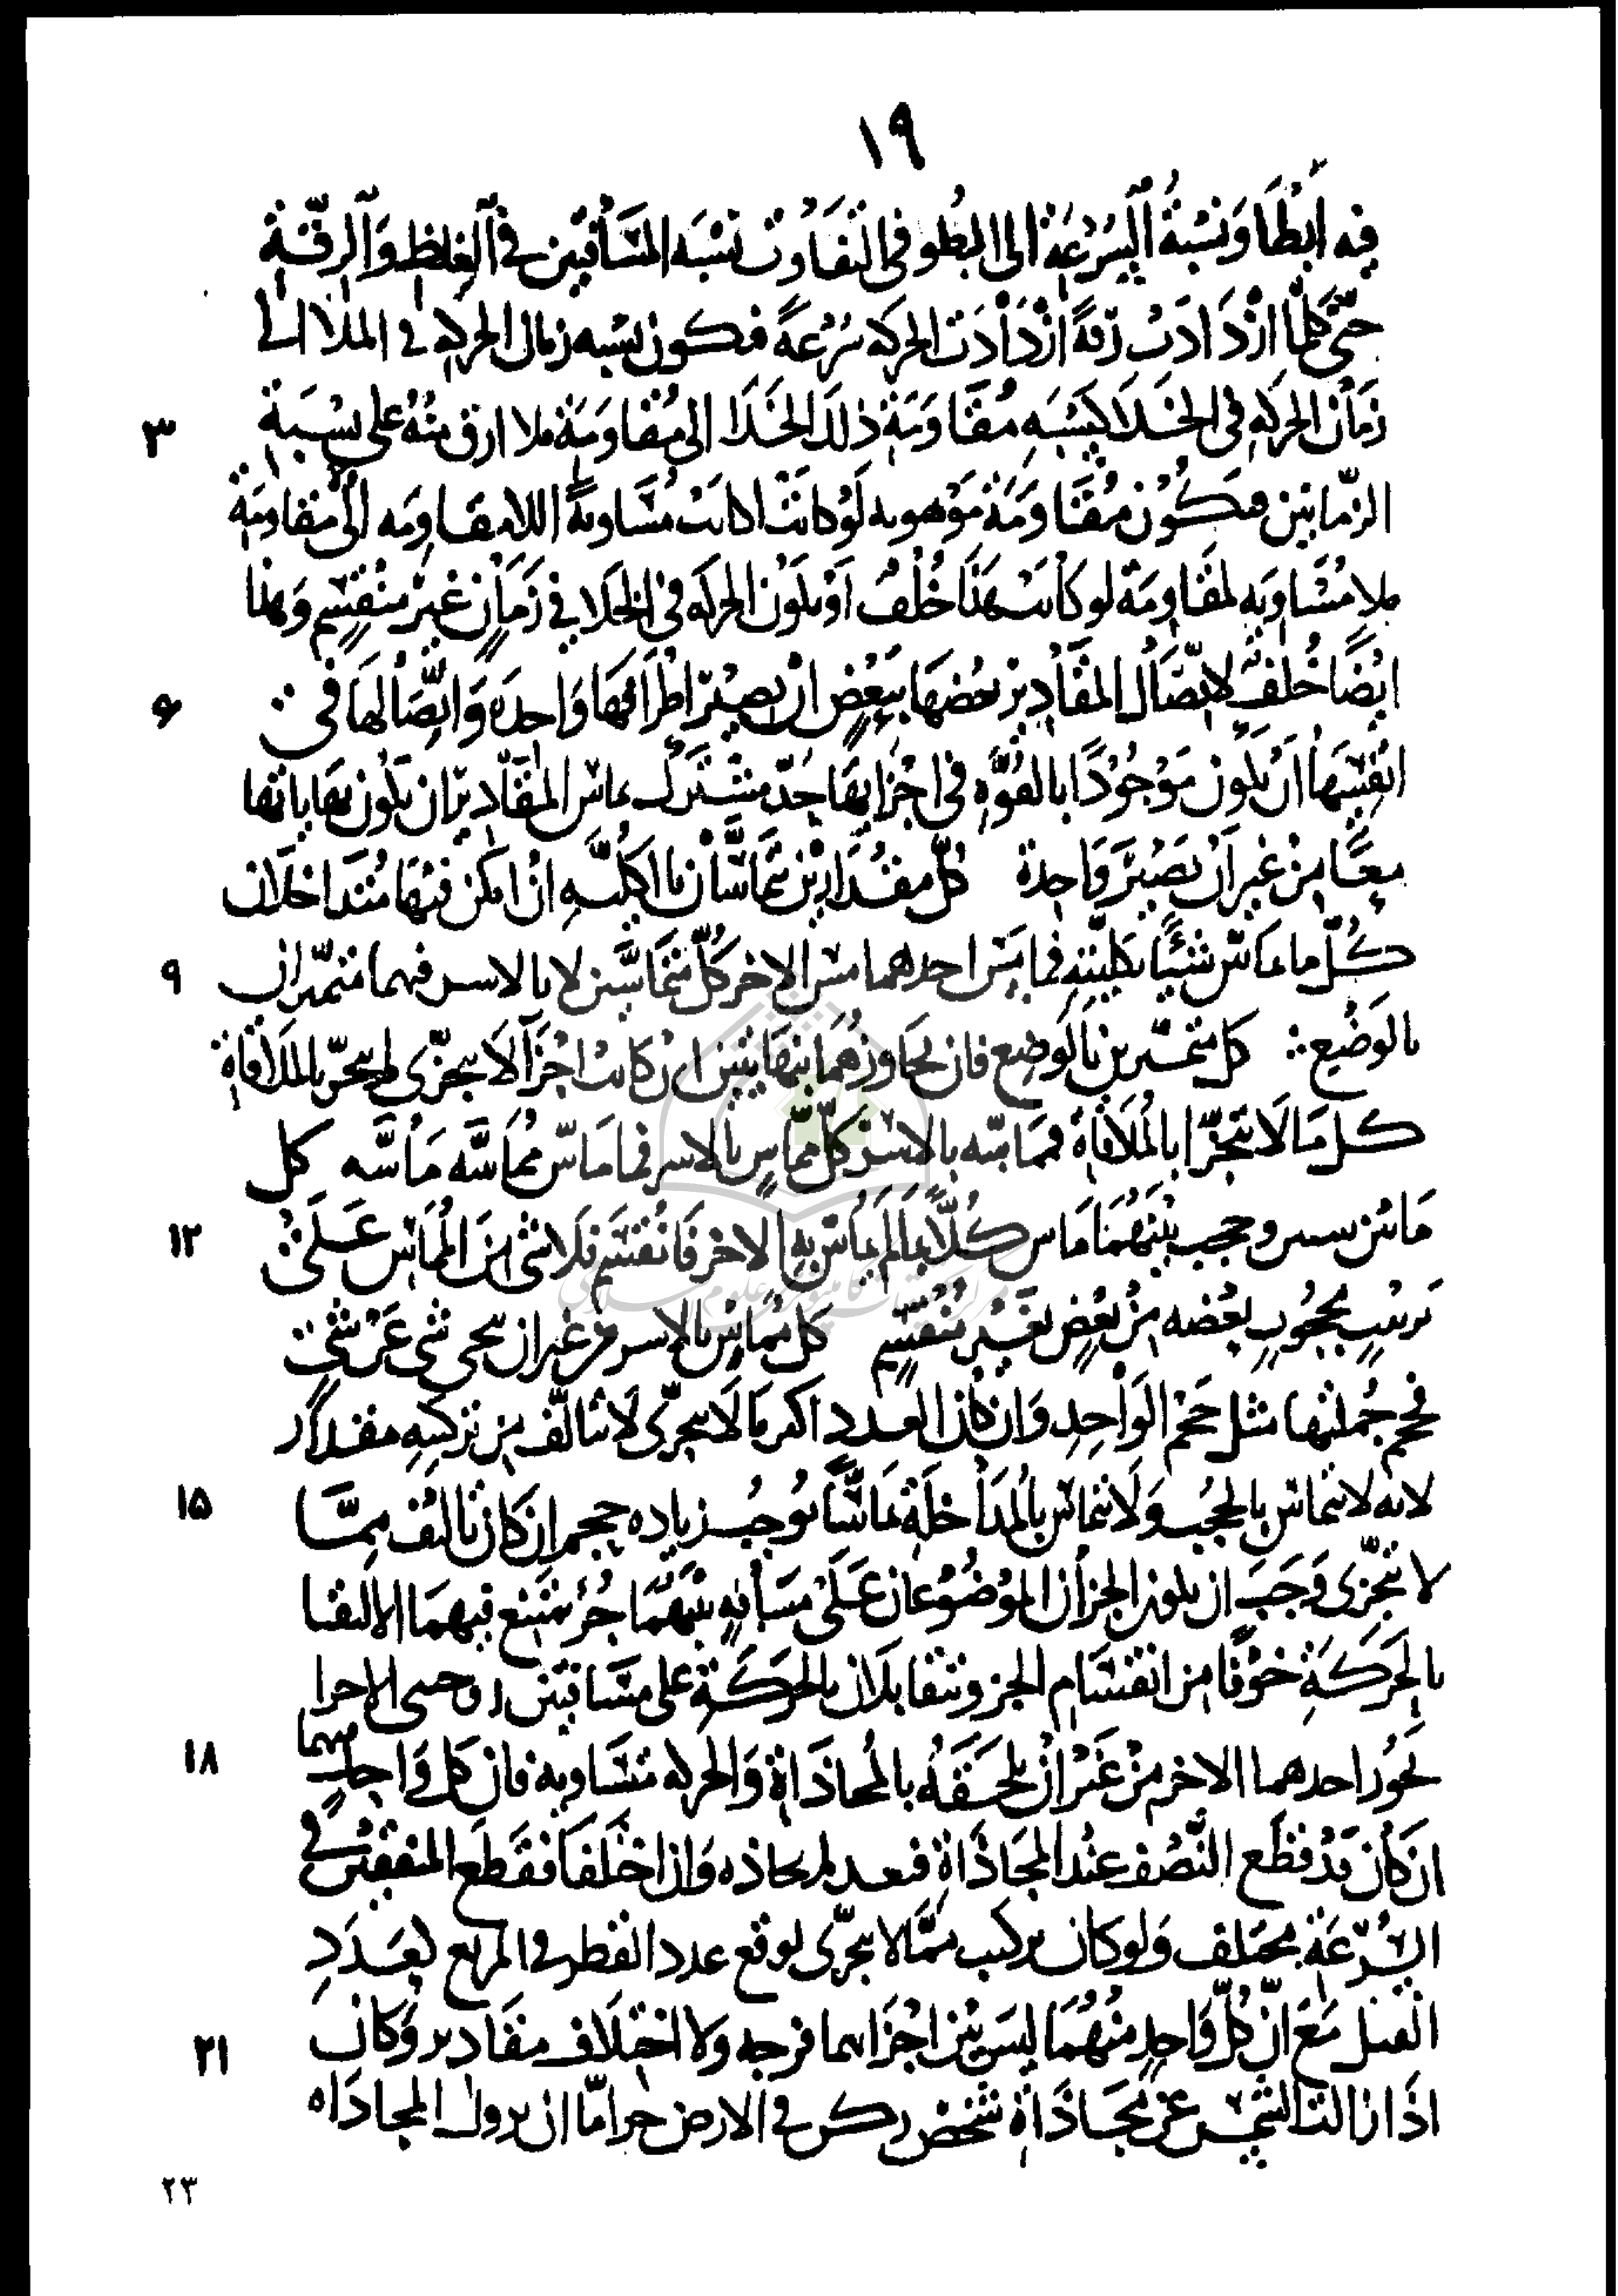 ١٩
فيه ابطا ونسبة السرعة الى البطو فى التفاوت نسبه المسافتين فى الغلظ والرقة
حتى كلما ازدادت رقة ازدادت الحركه سرعة فكون نسبه زمان الحركه فى الملا الى
زمان الحركه فى الخلا كنسبه مقاومة ذلك الخلا الى مقاومة ملا ارق منه على نسبة
٣
الزمانين فكون مقاومة موهومه لو كانت اكانت مساوية اللامقاومه الى مقاومة
ملا مساويه لمقاومة لو كانت هذا خلف او يكون الحركه فى الخلا فى زمان غير منقسم وهذا
ايضا خلف لاتصال المقادير بعضها ببعض ان يصير اطرافها واحده واتصالها فى
۶
انفسها ان يكون موجودا بالقوه فى اجزايها حد مشترك تماس المقادير ان يكون نهاياتها
معا من غير ان يصير واحدة كل مقدارين تماسان بالكليه ان امكن فيها متداخلان
كل ما ماس شيئا بكليته فما يمس احدهما مس الاخر كل متماسين لا بالاسر فهما متميزان
٩
بالوضع كل متميزين بالوضع فان تجاوزهما بنهايتين ان كانت اجزا لا يتجزى لم يتجز بالملاقاة
كل ما لا يتجزا بالملاقاة فمماسه بالاسر كل مماس بالاسر فما ماس مماسه ماسه كل
ما بين وحجب بينهما ماس كلا بما لم يماس به الاخر فانقسم فلا شى من المماس على
١٢
ترتيب محجوب بعضه من بعض بغير منقسم كل مماس بالاسر من غير ان شى عن شى
فحجم جملتها مثل حجم الواحد وان كان العدد اكثر ما لا يتجزى لا يتالف من تركيبه مقدار
لانه لا يتماس بالحجب ولا يتماس بالمداخلة تماسا يوجب زياده حجم ان كان تالف مما
١۵
لا يتجزى وجب ان يكون الجزأن الموضوعان على مسافه بينهما جزء يمتنع فيهما الالتقا
بالحركة خوفا من انقسام الجزو وتتقابلان بالحركة على مسافتين الاجزا
احدهما الاخر من غير ان يلحقه بالمحاذاة والحركه متساويه فان كل واحد منهما
١٨
ان كان قد قطع النصف عند المحاذاة فبعد لم يحاذه وان اختلفا فقطع المتفقتين فى
السرعة مختلف ولو كان تركيب مما لا يتجزى لوقع عدد القطر فى المربع لعدد
الضلع مع ان كل واحد منهما ليس بين اجزايهما فرجه ولا اختلاف مقادير وكان
٢١
اذا زالت الشمس عن محاذاة شخص ركن فى الارض جزا اما ان يزول المحاذاه
٢٣